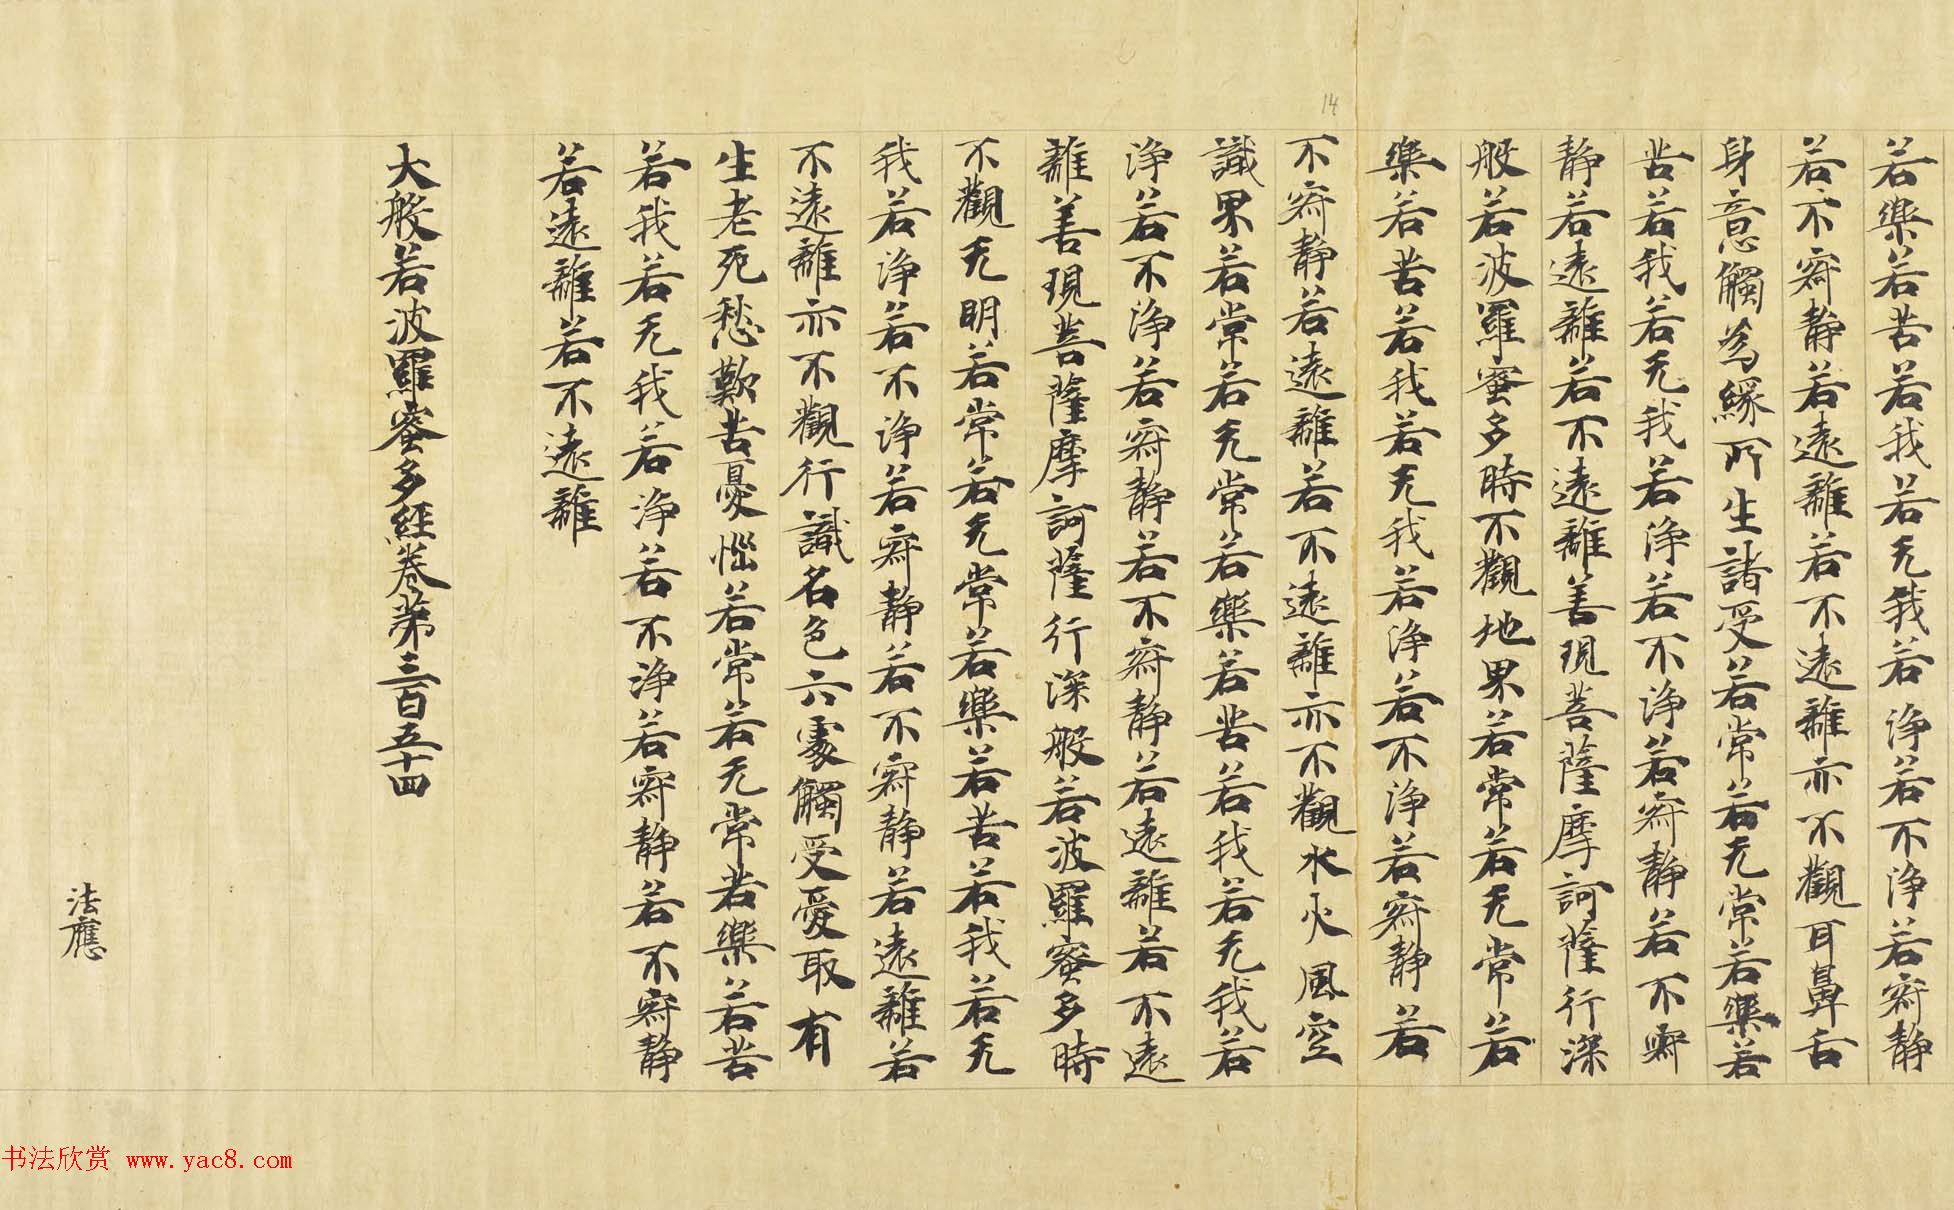 14
若樂若苦若我若无我若浄若不浄若寂静
若不寂静若遠離若不遠離亦不觀耳鼻舌
身意觸為緣所生諸受若常若无常若樂若
苦若我若无我若浄若不浄若寂静若不寂
静若遠離若不遠離善現菩薩摩訶薩行深
般若波羅蜜多時不觀地界若常若无常若
樂若苦若我若无我若浄若不浄若寂静若
不寂静若遠離若不遠離亦不觀水火風空
識界若常若无常若樂若苦若我若无我若
浄若不浄若寂静若不寂静若遠離若不遠
離善現菩薩摩訶薩行深般若波羅蜜多時
不觀无明若常若无常若樂若苦若我若无
我若浄若不浄若寂静若不寂静若遠離若
不遠離亦不觀行識名色六處觸受愛取有
生老死愁歎苦憂惱若常若无常若樂若苦
若我若无我若浄若不浄若寂静若不寂静
若遠離若不遠離
大般若波羅蜜多經卷第三百五十四
法應
书法欣赏 www.yac8.com